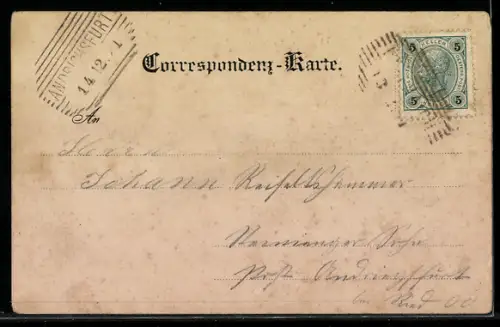 ANDRICHSFURT
14 12 1
Correspondenz-Karte.
5 5
5 5
An
Herrn
Johann Reifeltshammer
Sohn
Post Andrichsfurt
bei Ried OÖ